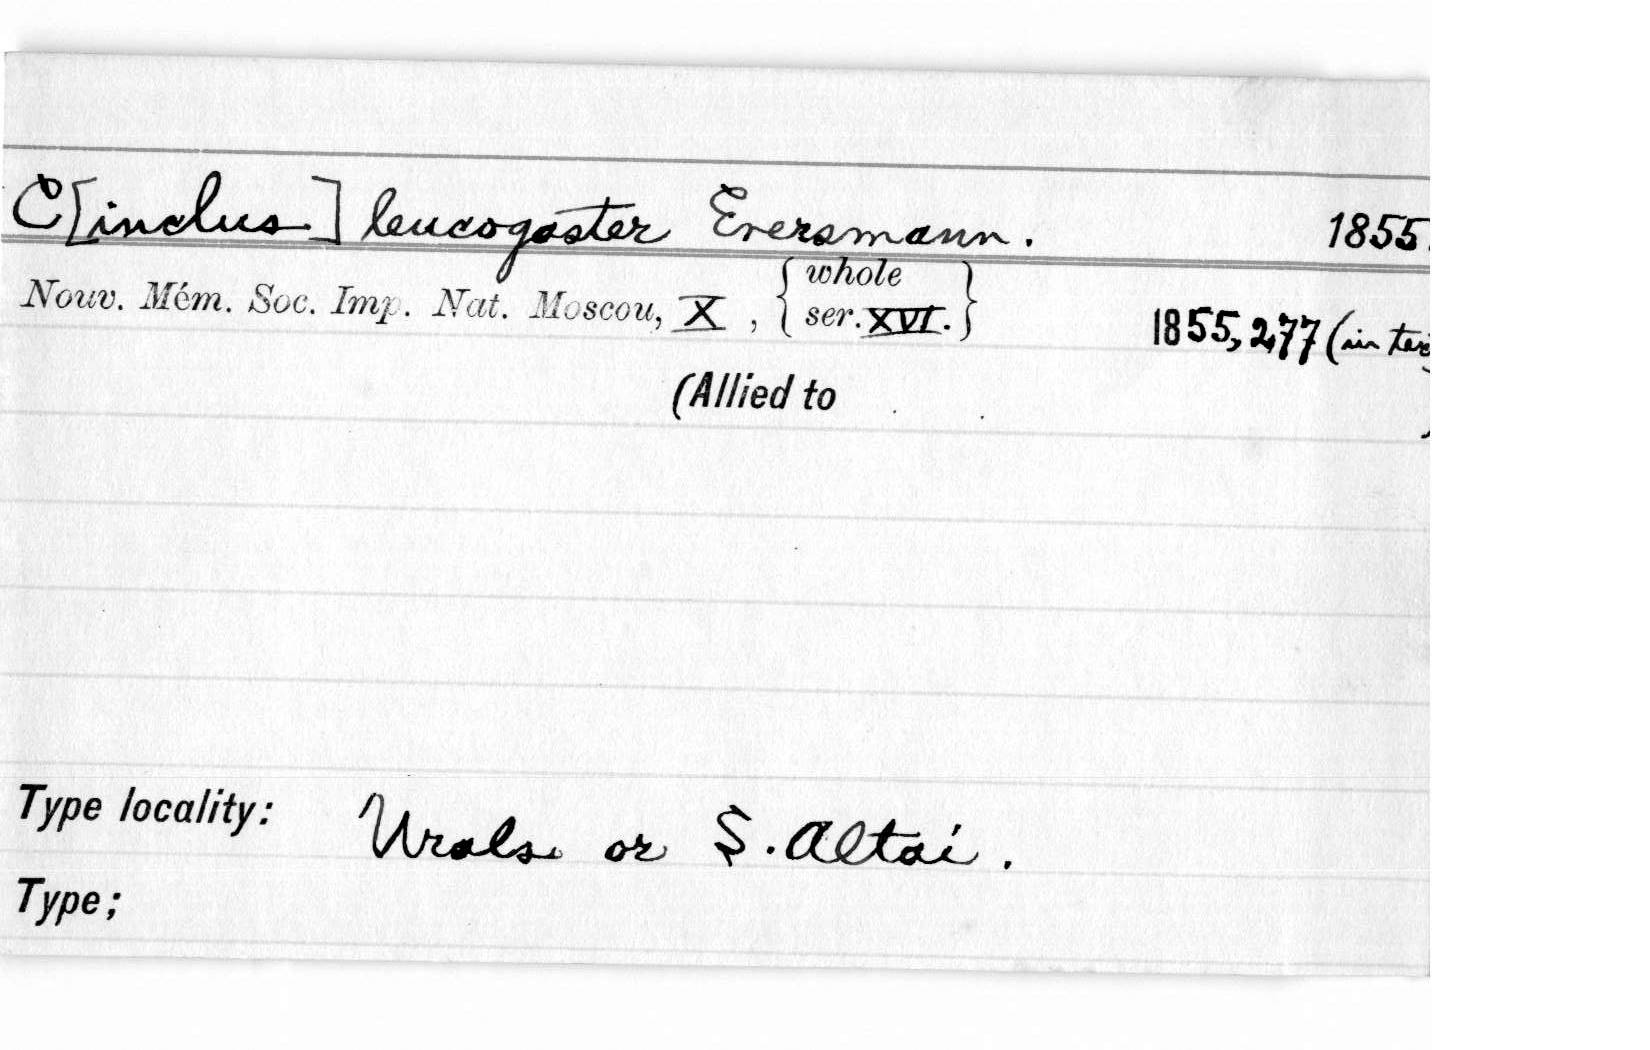 C[inclus] leucogaster Eversmann. 1855.
Nouv. Mém. Soc. Imp. Nat. Moscou, X, { whole ser. XVI. } 1855, 277 (in
(Allied to )
Type locality: Urals or S. Altai.
Type;